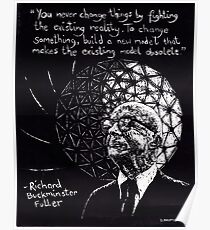 "You never change things by fighting
the existing reality. To change
something, build a new model that
makes the existing model obsolete"
- Richard
Buckminster
Fuller